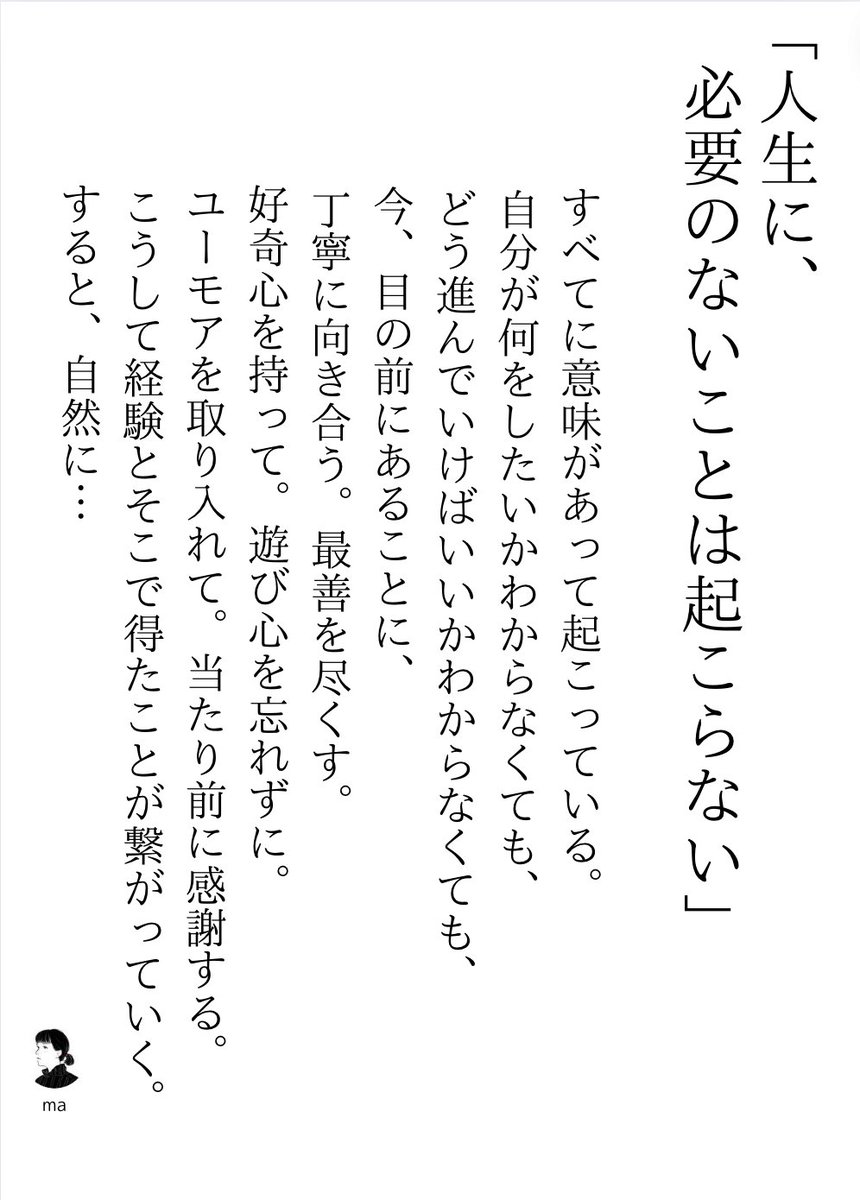 「人生に、
必要のないことは起こらない」
すべてに意味があって起こっている。
自分が何をしたいかわからなくても、
どう進んでいけばいいかわからなくても、
今、目の前にあることに、
丁寧に向き合う。最善を尽くす。
好奇心を持って。遊び心を忘れずに。
ユーモアを取り入れて。当たり前に感謝する。
こうして経験とそこで得たことが繋がっていく。
すると、自然に…
ma